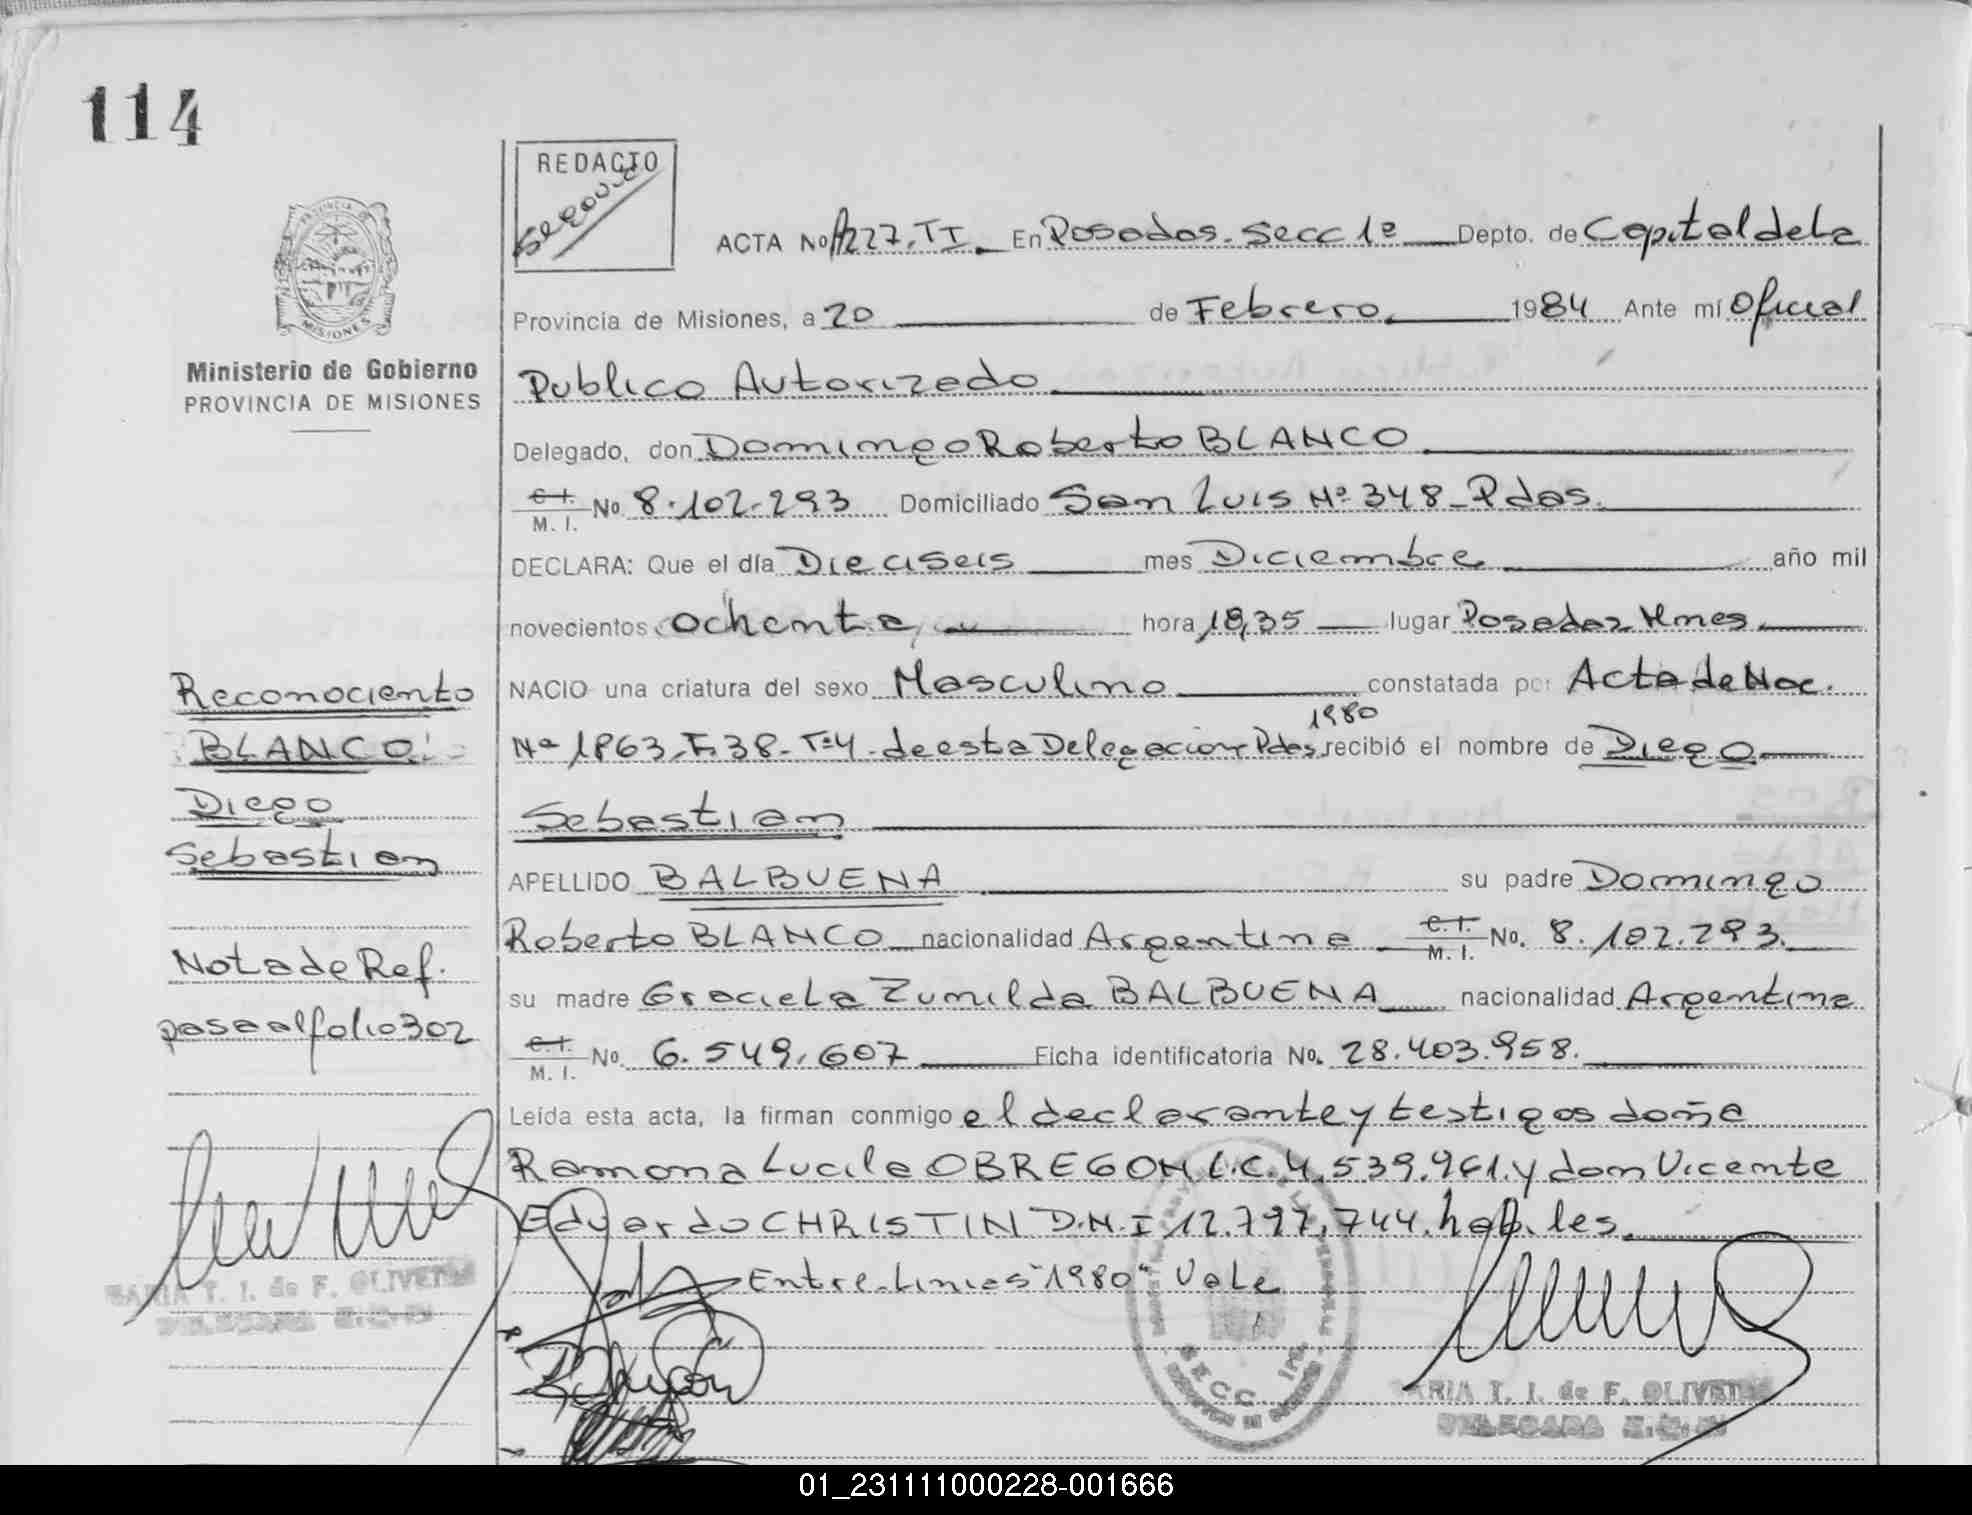 114
REDACTO
ACTA No 227. TI. En Posadas. Secc 1ª Depto. de Capital de la
Provincia de Misiones, a 20 de Febrero 1984 Ante mí Oficial
Ministerio de Gobierno
PROVINCIA DE MISIONES
Publico Autorizado
Delegado, don Domingo Roberto BLANCO
C. I. M. I. No. 8.102.293 Domiciliado San Luis Nº 348 - Pdas.
DECLARA: Que el día Dieciseis mes Diciembre año mil
novecientos ochenta, hora 18,35 lugar Posadas Mnes
NACIO una criatura del sexo Masculino constatada por Acta de Nac.
1980
Nº 1863. F. 38. Tº 4. de esta Delegacion Pdas, recibió el nombre de Diego
Sebastian
APELLIDO BALBUENA su padre Domingo
Roberto BLANCO nacionalidad Argentina C. I. M. I. No. 8.102.293.
su madre Graciela Zumilda BALBUENA nacionalidad Argentina
C. I. M. I. No. 6.549.607 Ficha identificatoria No. 28.403.958.
Leída esta acta, la firman conmigo el declarante y testigos doña
Ramona Lucila OBREGON L.C. 4.539.961. y don Vicente
Eduardo CHRISTIN D.N.I 12.797.744. habiles.
Entre-linias "1980" Vale
Reconociento
BLANCO
Diego
Sebastian
Nota de Ref.
pasa al folio 302
MARIA T. I. de F. OLIVEIRA
DELEGADA
SECC. 1ra.
ARIA T. I. de F. OLIVEIRA
DELEGADA
01_231111000228-001666